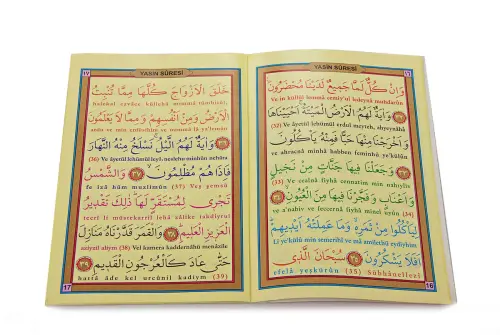 YASİN SÛRESİ
وَاِنْ كُلٌّ لَمَّا جَمِيعٌ لَدَيْنَا مُحْضَرُونَ
Ve in küllül lemmâ cemiy'ul ledeynâ muhdarûn
وَاٰيَةٌ لَهُمُ الْاَرْضُ الْمَيْتَةُ اَحْيَيْنَاهَا
(32) Ve âyetül lehümül erdul meyteh, ahyeynâhâ
وَاَخْرَجْنَا مِنْهَا حَبًّا فَمِنْهُ يَأْكُلُونَ ﴿٣٣﴾
ve ahracnâ minhâ habben feminhü ye'külûn
وَجَعَلْنَا فِيهَا جَنَّاتٍ مِنْ نَخِيلٍ
(33) Ve cealnâ fiyhâ cennatin min nahıylin
وَاَعْنَابٍ وَفَجَّرْنَا فِيهَا مِنَ الْعُيُونِ ﴿٣٤﴾
ve a'nâbiv ve feccernâ fiyhâ minel 'uyûn (34)
لِيَأْكُلُوا مِنْ ثَمَرِهِ وَمَا عَمِلَتْهُ اَيْدِيهِمْ
Li ye'külû min semerihî ve mâ amilethü eydiyhim
اَفَلَا يَشْكُرُونَ ﴿٣٥﴾ سُبْحَانَ الَّذِي
efelâ yeşkürûn (35) Sübhânellezî
16
١٧
YASİN SÛRESİ
خَلَقَ الْاَزْوَاجَ كُلَّهَا مِمَّا تُنْبِتُ
halekal ezvâce küllehâ mimmâ tünbitül,
الْاَرْضُ وَمِنْ اَنْفُسِهِمْ وَمِمَّا لَا يَعْلَمُونَ
ardu ve min enfüsihim ve mimmâ lâ ya'lemûn
وَاٰيَةٌ لَهُمُ الَّيْلُ نَسْلَخُ مِنْهُ النَّهَارَ
(36) Ve âyetül lehümül leyl, neslehu minhün nehâra
فَاِذَا هُمْ مُظْلِمُونَ ﴿٣٧﴾ وَالشَّمْسُ
fe izâ hüm muslimûn (37) Veş şemsü
تَجْرِي لِمُسْتَقَرٍّ لَهَا ذٰلِكَ تَقْدِيرُ
tecrî li müstekarril lehâ zâlike takdiyrul
الْعَزِيزِ الْعَلِيمِ ﴿٣٨﴾ وَالْقَمَرَ قَدَّرْنَاهُ مَنَازِلَ
aziyzil aliym (38) Vel kamera kaddernâhü menâzile
حَتّٰى عَادَ كَالْعُرْجُونِ الْقَدِيمِ ﴿٣٩﴾
hattâ âde kel urcûnil kadiym (39)
17